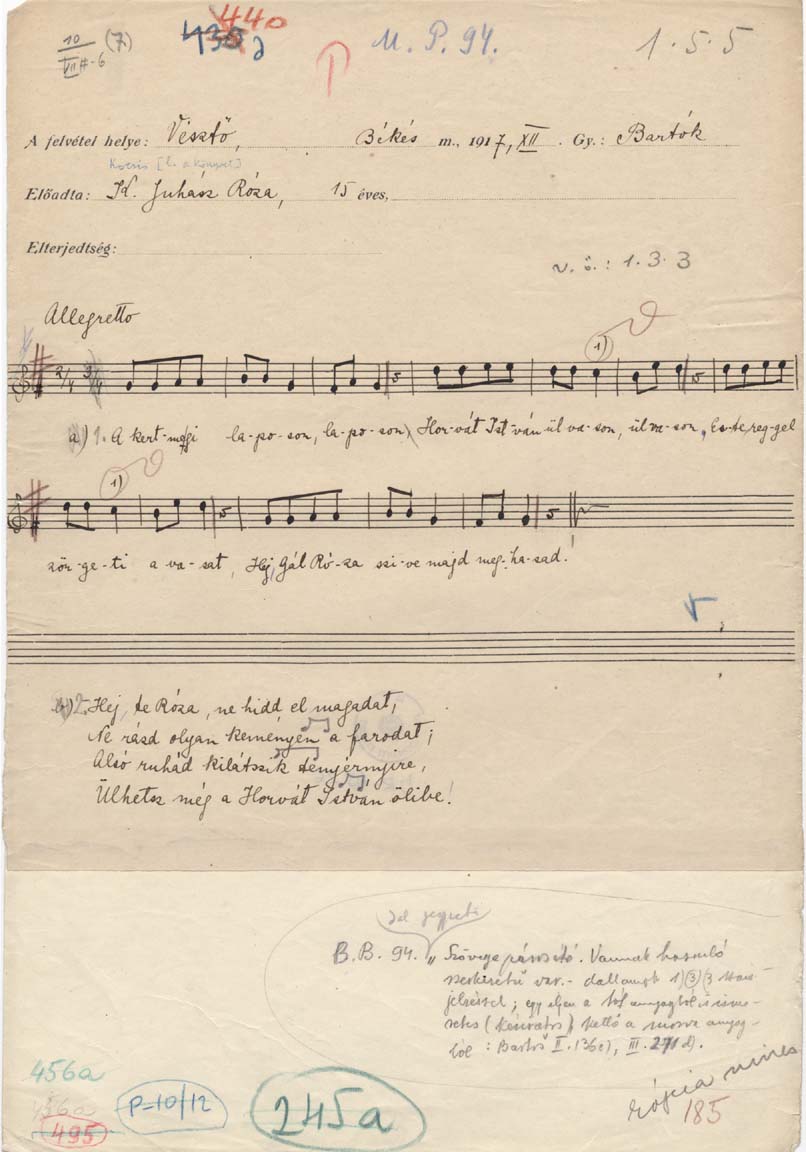 10 VII#-6 (7.)
440
435 d
M. P. 94.
1.5.5
A felvétel helye: Vésztő, Békés m., 1917, XII. Gy.: Bartók
Kocsis [l. a könyvet]
Előadta: K. Juhász Róza, 15 éves,
Elterjedtség:
v. ö.: 1.3.3
Allegretto
1)
2/4 3/4
a) 1. A kert-megi la-po-son, la-po-son, Hor-vát Ist-ván ül va-son, ül va-son, Es-te, reg-gel
1)
zör-ge-ti a va-sat, Hej, Gál Ró-za szi-ve majd meg-ha-sad!
b) 2. Hej, te Róza, ne hidd el magadat,
Ne rázd olyan keményen a farodat;
Alsó ruhád kilátszik tenyérnyire,
Ülhetsz még a Horvát István ölibe!
B.B. 94. „Szövege párosító. Vannak hasonló
szerkezetű var.- dallamok 1) (3) (3
jelzéssel; egy ilyen a tót anyagból is isme-
retes kettő a morva anyag-
ból: Bartoš II. 136c), III. 271 d).
456a
456a
495
P-10/12
245a
nincs
185